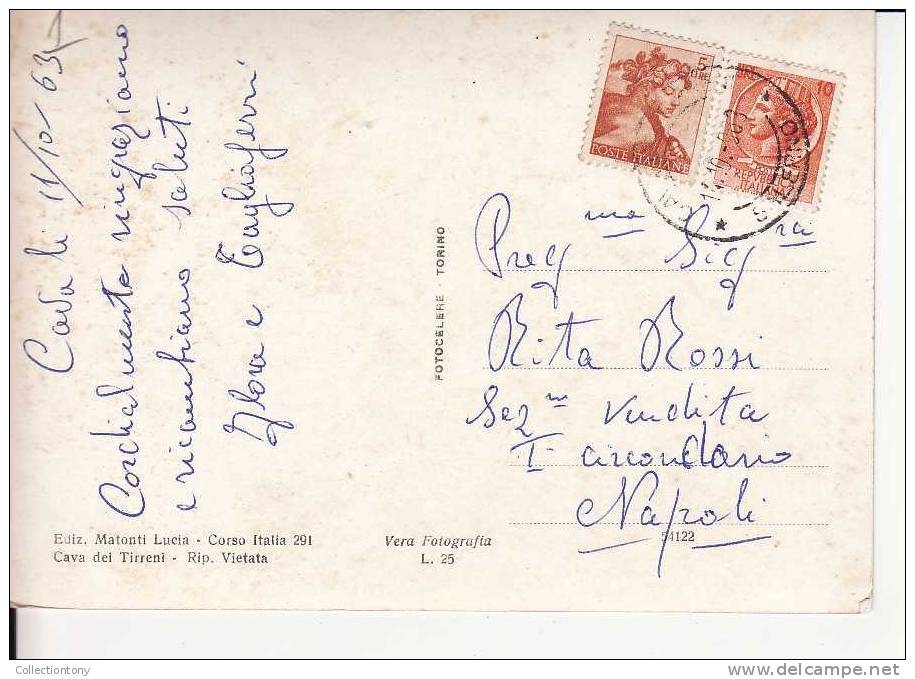 Cava li 11/10-63
Cordialmente ringraziamo
e ricambiamo saluti
Flora e Tagliaferri
Ediz. Matonti Lucia - Corso Italia 291
Cava dei Tirreni - Rip. Vietata
Vera Fotografia
L. 25
FOTOCELERE - TORINO
5
LIRE
POSTE ITALIANE
LIRE 10
REPUBBLICA
ITALIANA
SALERNO
Preg ma Sig ra
Rita Rossi
Sez ne Vendita
I circondario
Napoli
54122
Collectiontony
www.delcampe.net